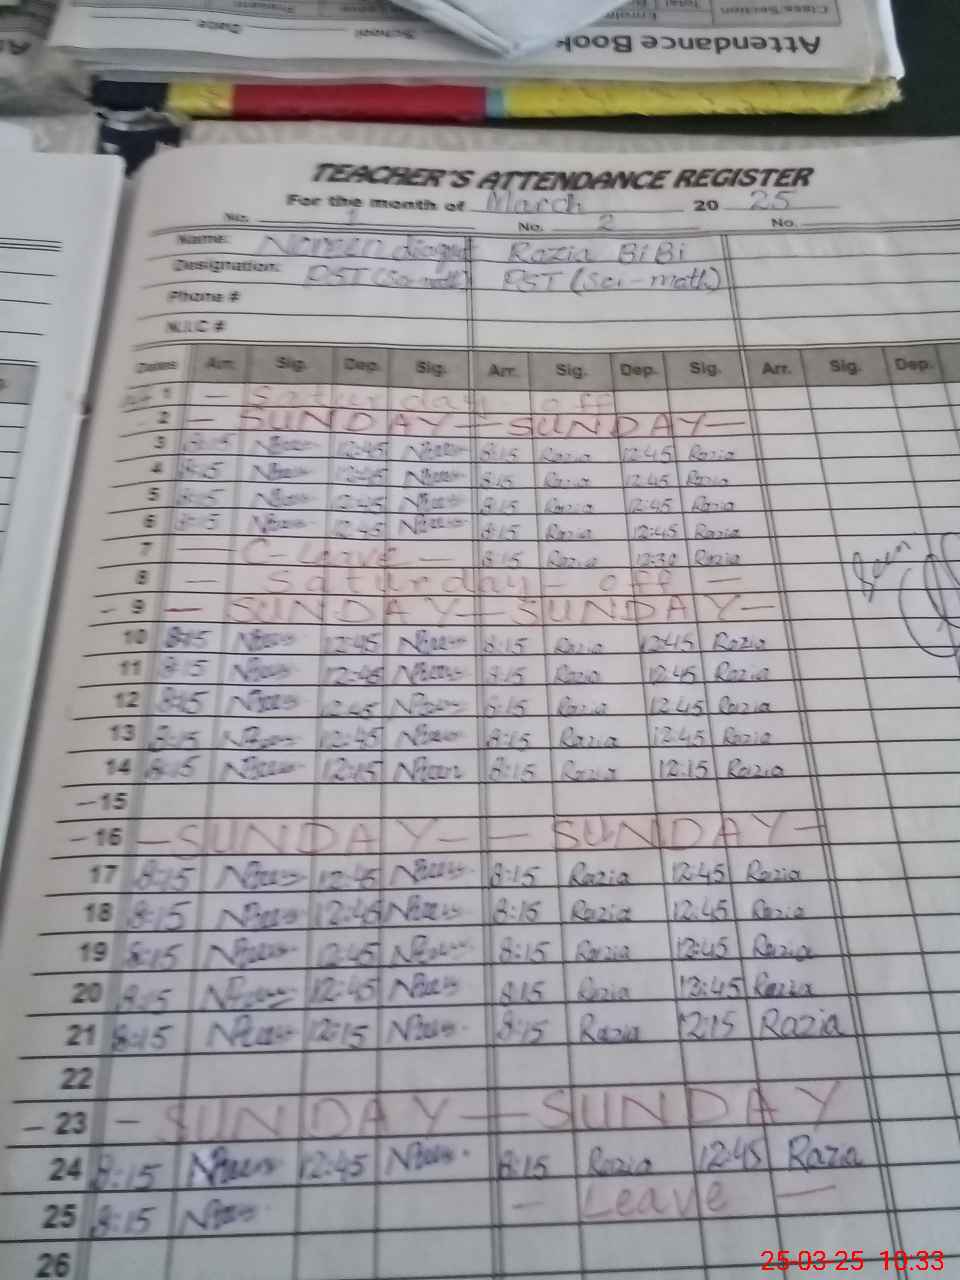 Attendance Book
Class/Section
School
Date
TEACHER'S ATTENDANCE REGISTER
For the month of March 20 25
No. 1 No. 2 No.
Name: Razia BiBi
Designation: PST (Sci-math) PST (Sci-math)
Phone #
N.I.C #
Dates Arr. Sig. Dep. Sig. Arr. Sig. Dep. Sig. Arr. Sig. Dep.
1 — Saturday - off
- 2 — SUNDAY — SUNDAY —
3 8:15 12:45 8:15 Razia 12:45 Razia
4 8:15 12:45 8:15 Razia 12:45 Razia
5 8:15 12:45 8:15 Razia 12:45 Razia
6 8:15 12:45 8:15 Razia 12:45 Razia
7 — C-Leave — 8:15 Razia 12:30 Razia
8 — Saturday - off —
- 9 — SUNDAY — SUNDAY —
10 8:15 12:45 8:15 Razia 12:45 Razia
11 8:15 12:45 8:15 Razia 12:45 Razia
12 8:15 12:45 8:15 Razia 12:45 Razia
13 8:15 12:45 8:15 Razia 12:45 Razia
14 8:15 12:15 8:15 Razia 12:15 Razia
- 15
- 16 — SUNDAY — — SUNDAY —
17 8:15 12:45 8:15 Razia 12:45 Razia
18 8:15 12:45 8:15 Razia 12:45 Razia
19 8:15 12:45 8:15 Razia 12:45 Razia
20 8:15 12:45 8:15 Razia 12:45 Razia
21 8:15 12:15 8:15 Razia 12:15 Razia
22
- 23 — SUNDAY — SUNDAY
24 8:15 12:45 8:15 Razia 12:45 Razia
25 8:15 — Leave —
26
25-03-25 10:33